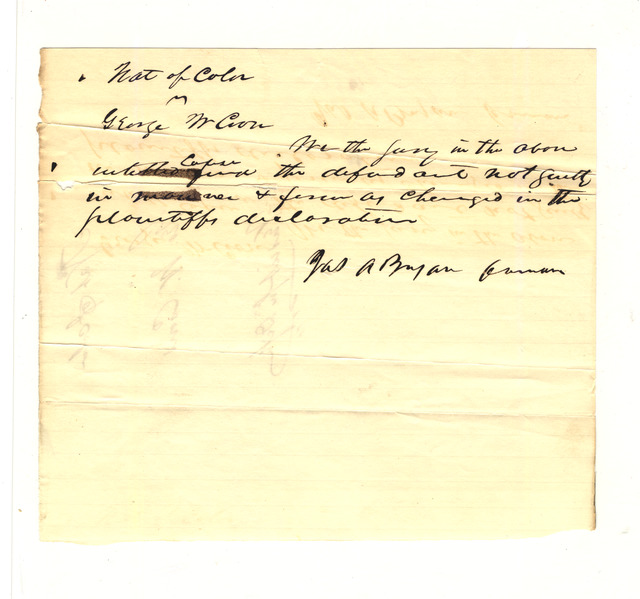 Nat of Color
vs
George W Coon
We the Jury in the above
intitled Cause find the defendant not guilty
in manner & form as charged in the
plaintiffs declaration
Jas A Bryan forman